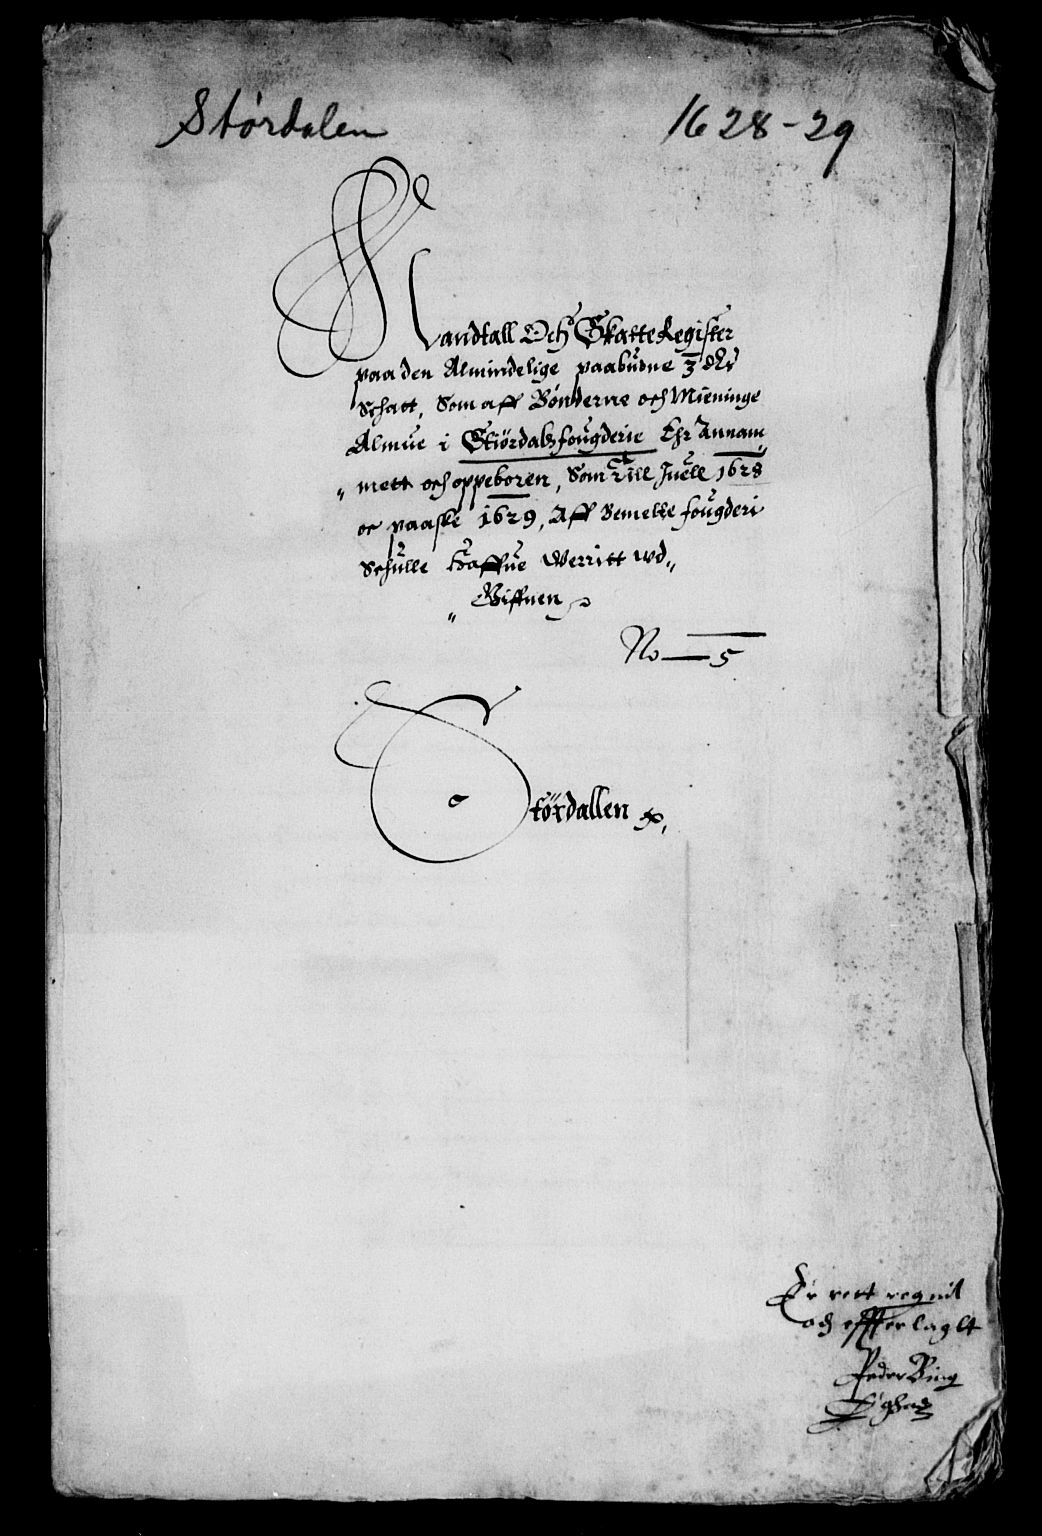 Størdalen 1628-29
Mandtall Och Skatte Register
paa den Almindelige paabudne 3 dlr
Schatt, Som aff Bønderne och Mieninge
Almue i Stiördalsfougderie Ehr Annam
mett och oppeboren, Som till Juell 1628
oc paaske 1629, Aff Bemelte fougderi
Schulle haffue Werritt wd
Giffuen
No 5
Stördallen
Er rett regnit
och effterlaglt
Peder Bing